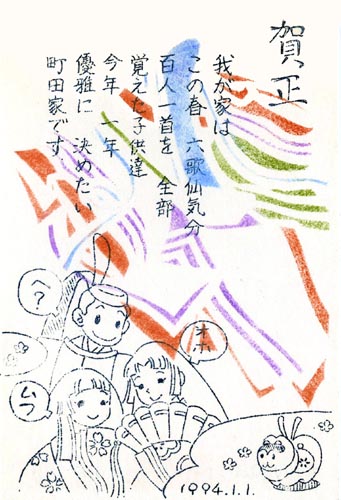 賀正
我が家は
この春 六歌仙気分
百人一首を 全部
覚えた子供達
今年 一年
優雅に 決めたい
町田家です
?
オホ
ムフ
1994.1.1.